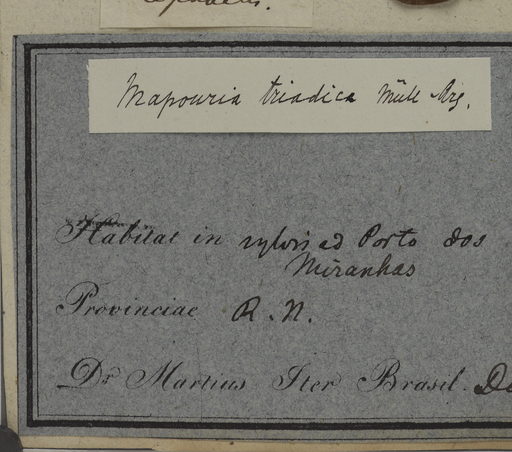 Mapouria triadica Müll Arg.
Habitat in sylvis ad Porto dos
Miranhas
Provinciae R. N.
Dr Martius Iter Brasil.